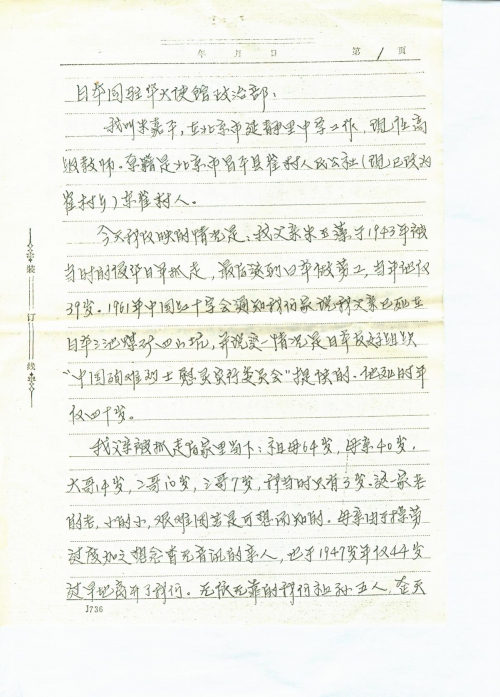 年 月 日 第 1 页
日本国驻华大使馆政治部：
我叫朱嘉平，在北京市延静里中学工作，现任高
级教师。原籍是北京市昌平县崔村人民公社（现已改为
崔村乡）东崔村人。
今天我反映的情况是：我父亲朱玉 于1943年被
当时的侵华日军抓走，最后送到日本做劳工，当年他仅
39岁。1961年中国红十字会通知我们家说我父亲已死在
日本三池煤矿四山坑，并说这一情况是日本友好组织
“中国殉难烈士慰灵实行委员会”提供的。他死时年
仅四十岁。
我父亲被抓走后家里留下：祖母64岁，母亲40岁，
大哥14岁，二哥10岁，三哥7岁，我当时只有3岁。这一家老
的老，小的小，艰难困苦是可想而知的。母亲由于操劳
过度加之想念杳无音讯的亲人，也于1947岁年仅44岁
过早地离开了我们。无依无靠的我们祖孙五人，在天
装 订 线
J736